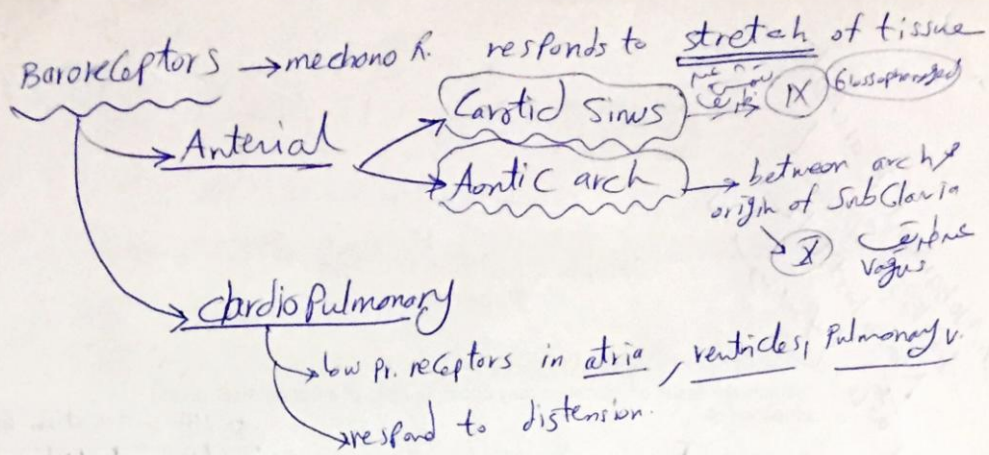 Baroreceptors → mechano R. responds to stretch of tissue
Arterial
Carotid Sinus → IX Glossopharyngeal
Aortic arch → between arch &
origin of SubClavia
X
Vagus
Cardiopulmonary
low Pr. receptors in atria, ventricles, Pulmonary v.
respond to distension.